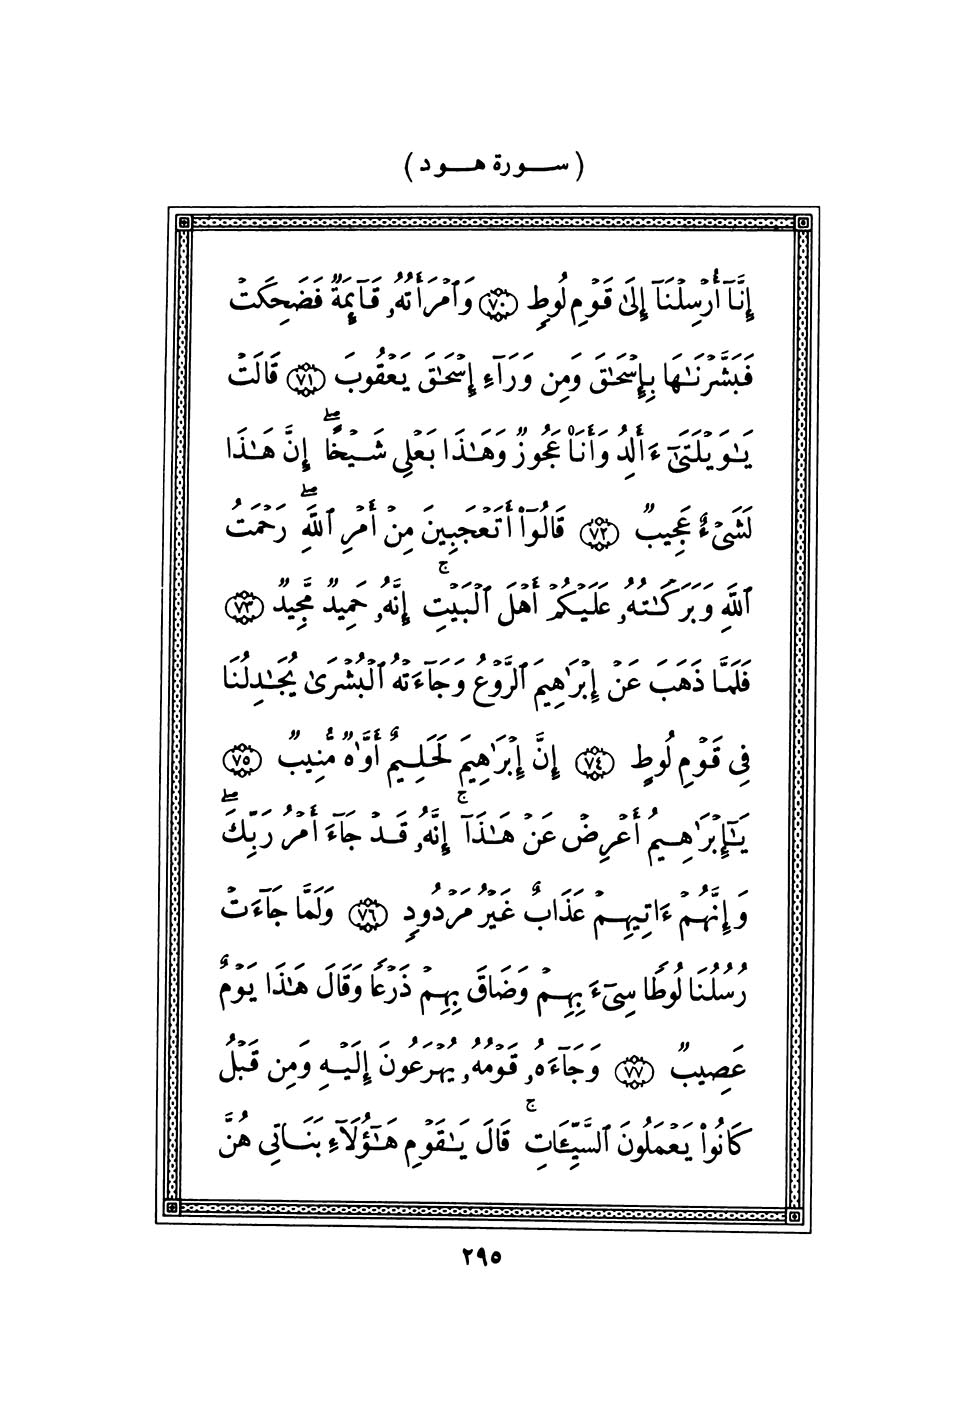 ( ســورة هــود )
إِنَّآ أُرْسِلْنَآ إِلَىٰ قَوْمِ لُوطٍ ﴿٧٠﴾ وَٱمْرَأَتُهُۥ قَآئِمَةٌ فَضَحِكَتْ
فَبَشَّرْنَـٰهَا بِإِسْحَـٰقَ وَمِن وَرَآءِ إِسْحَـٰقَ يَعْقُوبَ ﴿٧١﴾ قَالَتْ
يَـٰوَيْلَتَىٰٓ ءَأَلِدُ وَأَنَا۠ عَجُوزٌ وَهَـٰذَا بَعْلِى شَيْخًا ۖ إِنَّ هَـٰذَا
لَشَىْءٌ عَجِيبٌ ﴿٧٢﴾ قَالُوٓا۟ أَتَعْجَبِينَ مِنْ أَمْرِ ٱللَّهِ ۖ رَحْمَتُ
ٱللَّهِ وَبَرَكَـٰتُهُۥ عَلَيْكُمْ أَهْلَ ٱلْبَيْتِ ۚ إِنَّهُۥ حَمِيدٌ مَّجِيدٌ ﴿٧٣﴾
فَلَمَّا ذَهَبَ عَنْ إِبْرَٰهِيمَ ٱلرَّوْعُ وَجَآءَتْهُ ٱلْبُشْرَىٰ يُجَـٰدِلُنَا
فِى قَوْمِ لُوطٍ ﴿٧٤﴾ إِنَّ إِبْرَٰهِيمَ لَحَلِيمٌ أَوَّٰهٌ مُّنِيبٌ ﴿٧٥﴾
يَـٰٓإِبْرَٰهِيمُ أَعْرِضْ عَنْ هَـٰذَآ ۚ إِنَّهُۥ قَدْ جَآءَ أَمْرُ رَبِّكَ ۖ
وَإِنَّهُمْ ءَاتِيهِمْ عَذَابٌ غَيْرُ مَرْدُودٍ ﴿٧٦﴾ وَلَمَّا جَآءَتْ
رُسُلُنَا لُوطًا سِىٓءَ بِهِمْ وَضَاقَ بِهِمْ ذَرْعًا وَقَالَ هَـٰذَا يَوْمٌ
عَصِيبٌ ﴿٧٧﴾ وَجَآءَهُۥ قَوْمُهُۥ يُهْرَعُونَ إِلَيْهِ وَمِن قَبْلُ
كَانُوا۟ يَعْمَلُونَ ٱلسَّيِّـَٔاتِ ۚ قَالَ يَـٰقَوْمِ هَـٰٓؤُلَآءِ بَنَاتِى هُنَّ
٢٩٥